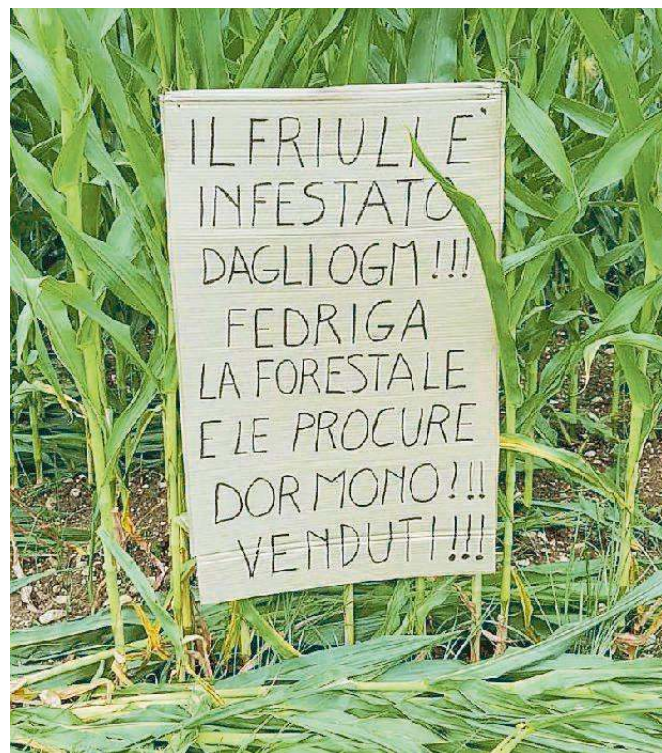 IL FRIULI E'
INFESTATO
DAGLI OGM!!!
FEDRIGA
LA FORESTALE
E LE PROCURE
DORMONO?!!
VENDUTI!!!